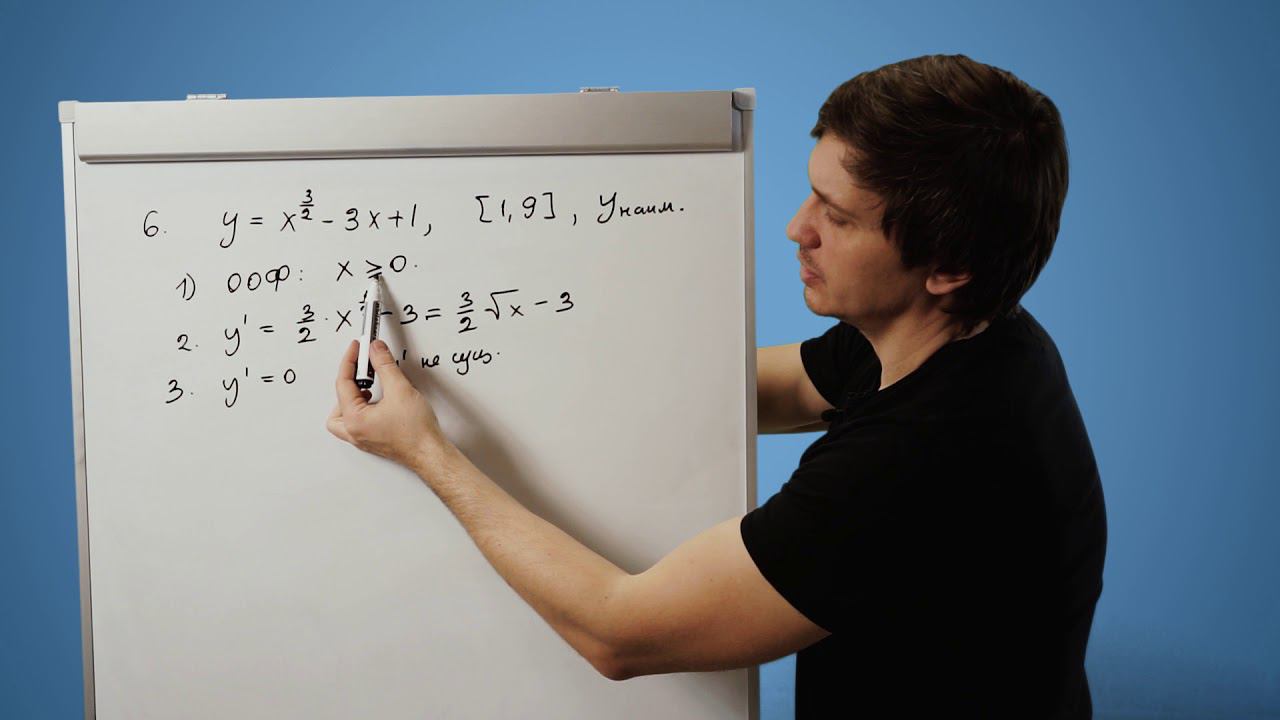 6. y = x^{3/2} - 3x + 1, [1, 9], Yнаим.
1) ООФ: x ≥ 0.
2. y' = 3/2 · x - 3 = 3/2 √x - 3
3. y' = 0 y' не сущ.